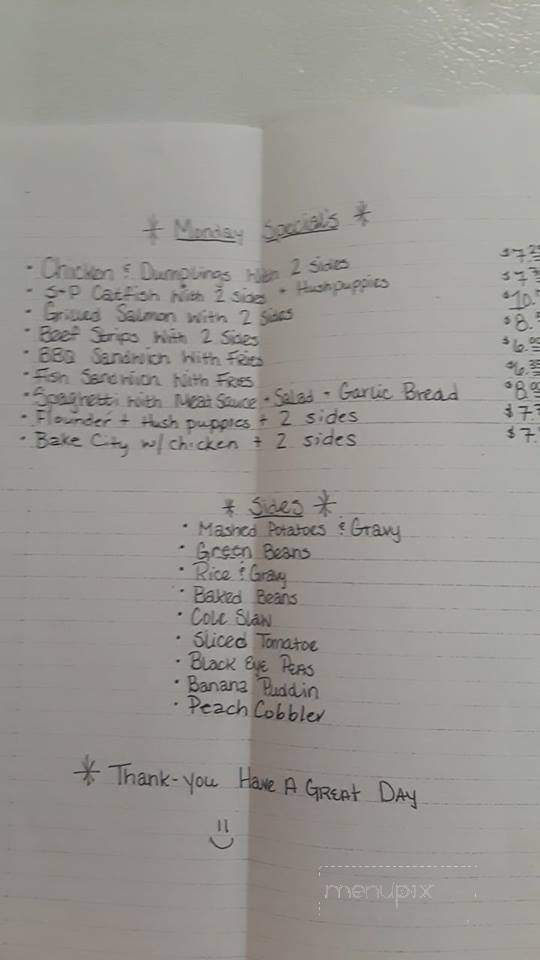 * Monday Special's *
• Chicken & Dumplings with 2 sides $7.25
• S-P Catfish with 2 sides + Hushpuppies $7.
• Grilled Salmon with 2 sides $10.
• Beef Strips with 2 sides $8.
• BBQ Sandwich with Fries $6.
• Fish Sandwich with Fries $6.
• Spaghetti with Meat Sauce + Salad + Garlic Bread $8.
• Flounder + Hush puppies + 2 sides $7.
• Bake City w/ chicken + 2 sides $7.
* Sides *
• Mashed Potatoes & Gravy
• Green Beans
• Rice & Gravy
• Baked Beans
• Cole Slaw
• Sliced Tomatoe
• Black Eye Peas
• Banana Puddin
• Peach Cobbler
* Thank-you Have A Great Day
menupix